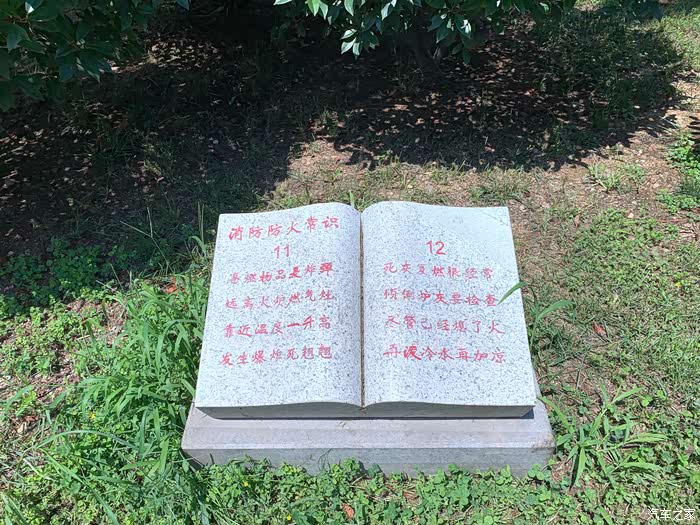 消防防火常识
11
易燃物品是炸弹
远离火炉燃气灶
靠近温度一升高
发生爆炸死翘翘
12
死灰复燃很经常
倾倒炉灰要检查
尽管已经熄了火
再泼冷水再加凉
汽车之家